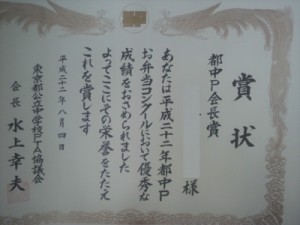 賞状
都中P会長賞
様
あなたは平成二十二年都中P
お弁当コンクールにおいて優秀な
成績をおさめられました
よってここにその栄誉をたたえ
これを賞します
平成二十二年八月四日
東京都公立中学校PTA協議会
会長 水上幸夫